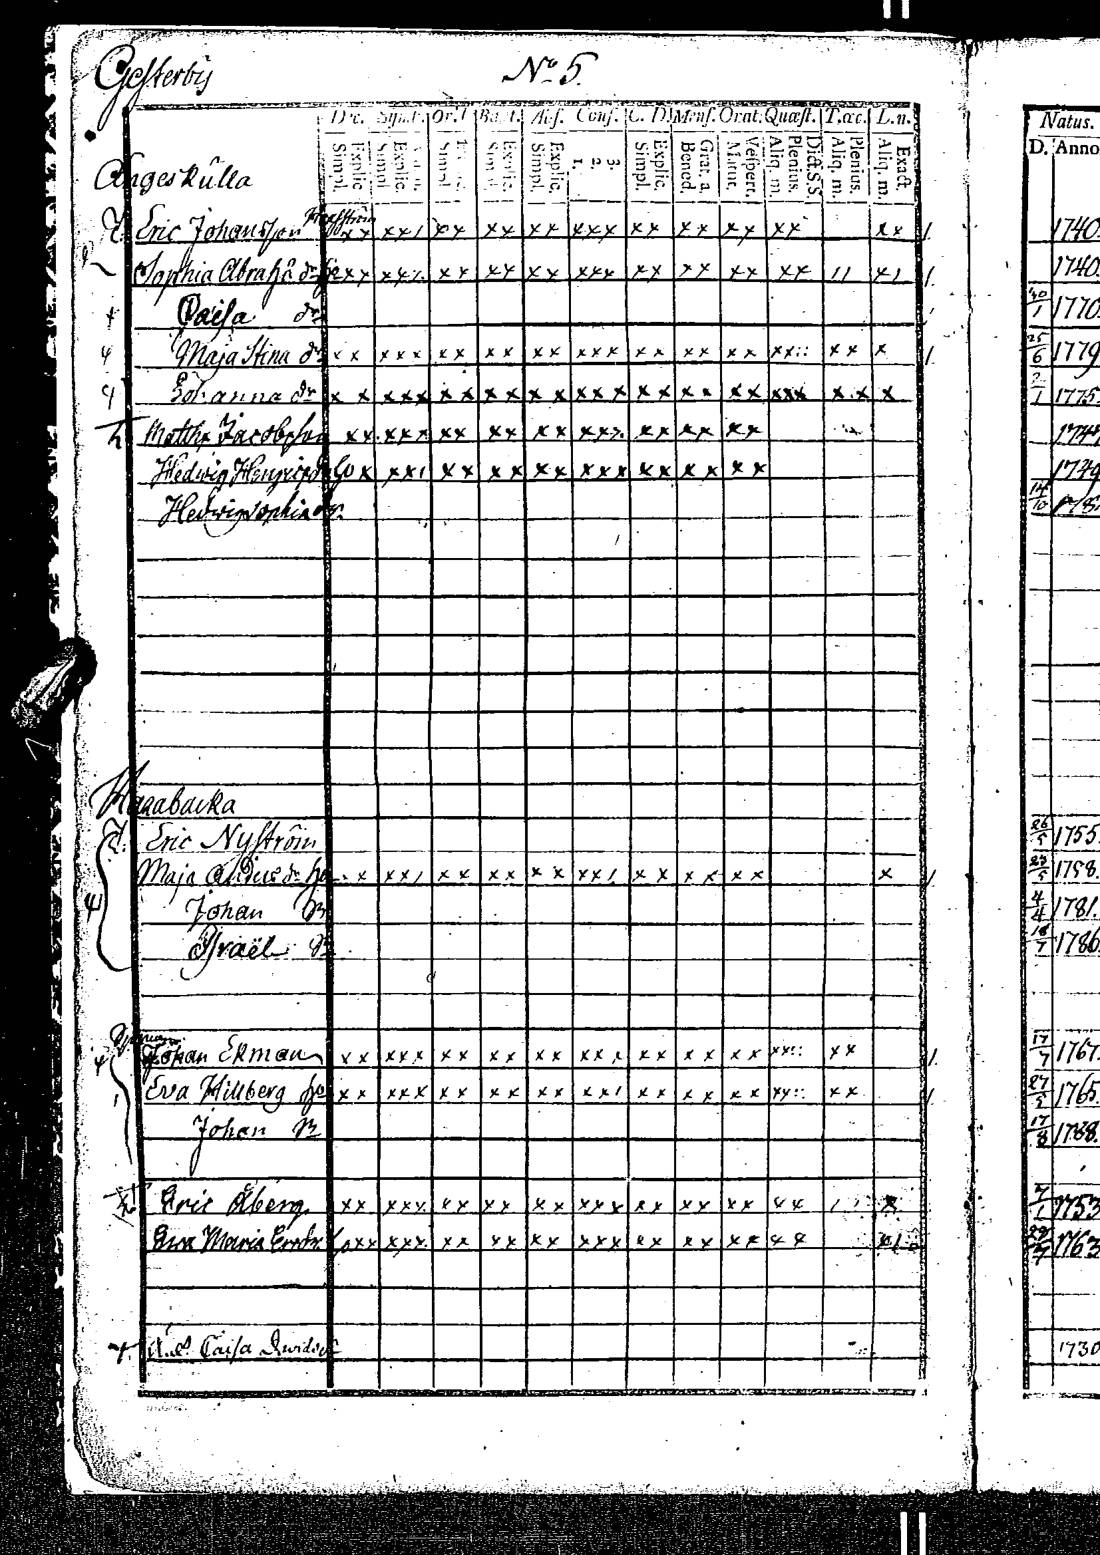 Gesterbÿ No 5.
Dec. Symb. Or. D Bapt. Abs. Conf. C. D Mens. Orat. Quæst. T.œc. L.n. Natus.
Simpl. Explic. Simpl. Explic. Simpl. Simpl. Explic. Simpl. Explic. 1. 2. 3. Simpl. Explic. Bened. Grat. a. Matut. Vespert. Aliq. m. Plenius. Dict. S.S. Aliq. m. Plenius. Aliq. m. Exact D. Anno
Ängeskulla
Eric Johansson xx xx1 xx xx xx xxx xx xx xx xx xx 1740.
Sophia Abrah. dr xx xx xx xx xx xxx xx xx xx xx 11 x1 1740.
Caisa dr 1 1770
Maja Stina dr xx xxx xx xx xx xxx xx xx xx xx:: xx x 25/6 1779
Johanna dr xx xxx xx xx xx xxx xx xx xx xxx xx x 1 1775.
Matths Jacobsson xx xxx xx xx xx xxx xx xx xx
Hedwig Henricsdr x xx1 xx xx xx xxx xx xx xx 1749
Hedwig Sophia dr. 14/10
Hagabacka
Eric Nyström 26/5 1755.
Maja dr x xx1 xx xx xx xx1 xx xx xx x 23/5 1758.
Johan 4/4 1781.
Israël 18/7 1786
Johan Ekman xx xxx xx xx xx xxx xx xx xx xx:: xx 17/7 1767.
Eva Hillberg xx xxx xx xx xx xx1 xx xx xx xx:: xx 27/5 1765.
Johan 17/8 1788.
Eric Åberg xx xxx xx xx xx xxx xx xx xx xx 1 x 7/1 1753
Eva Maria xx xxx xx xx xx xxx xx xx xx xx x1 1763
Caisa 1730